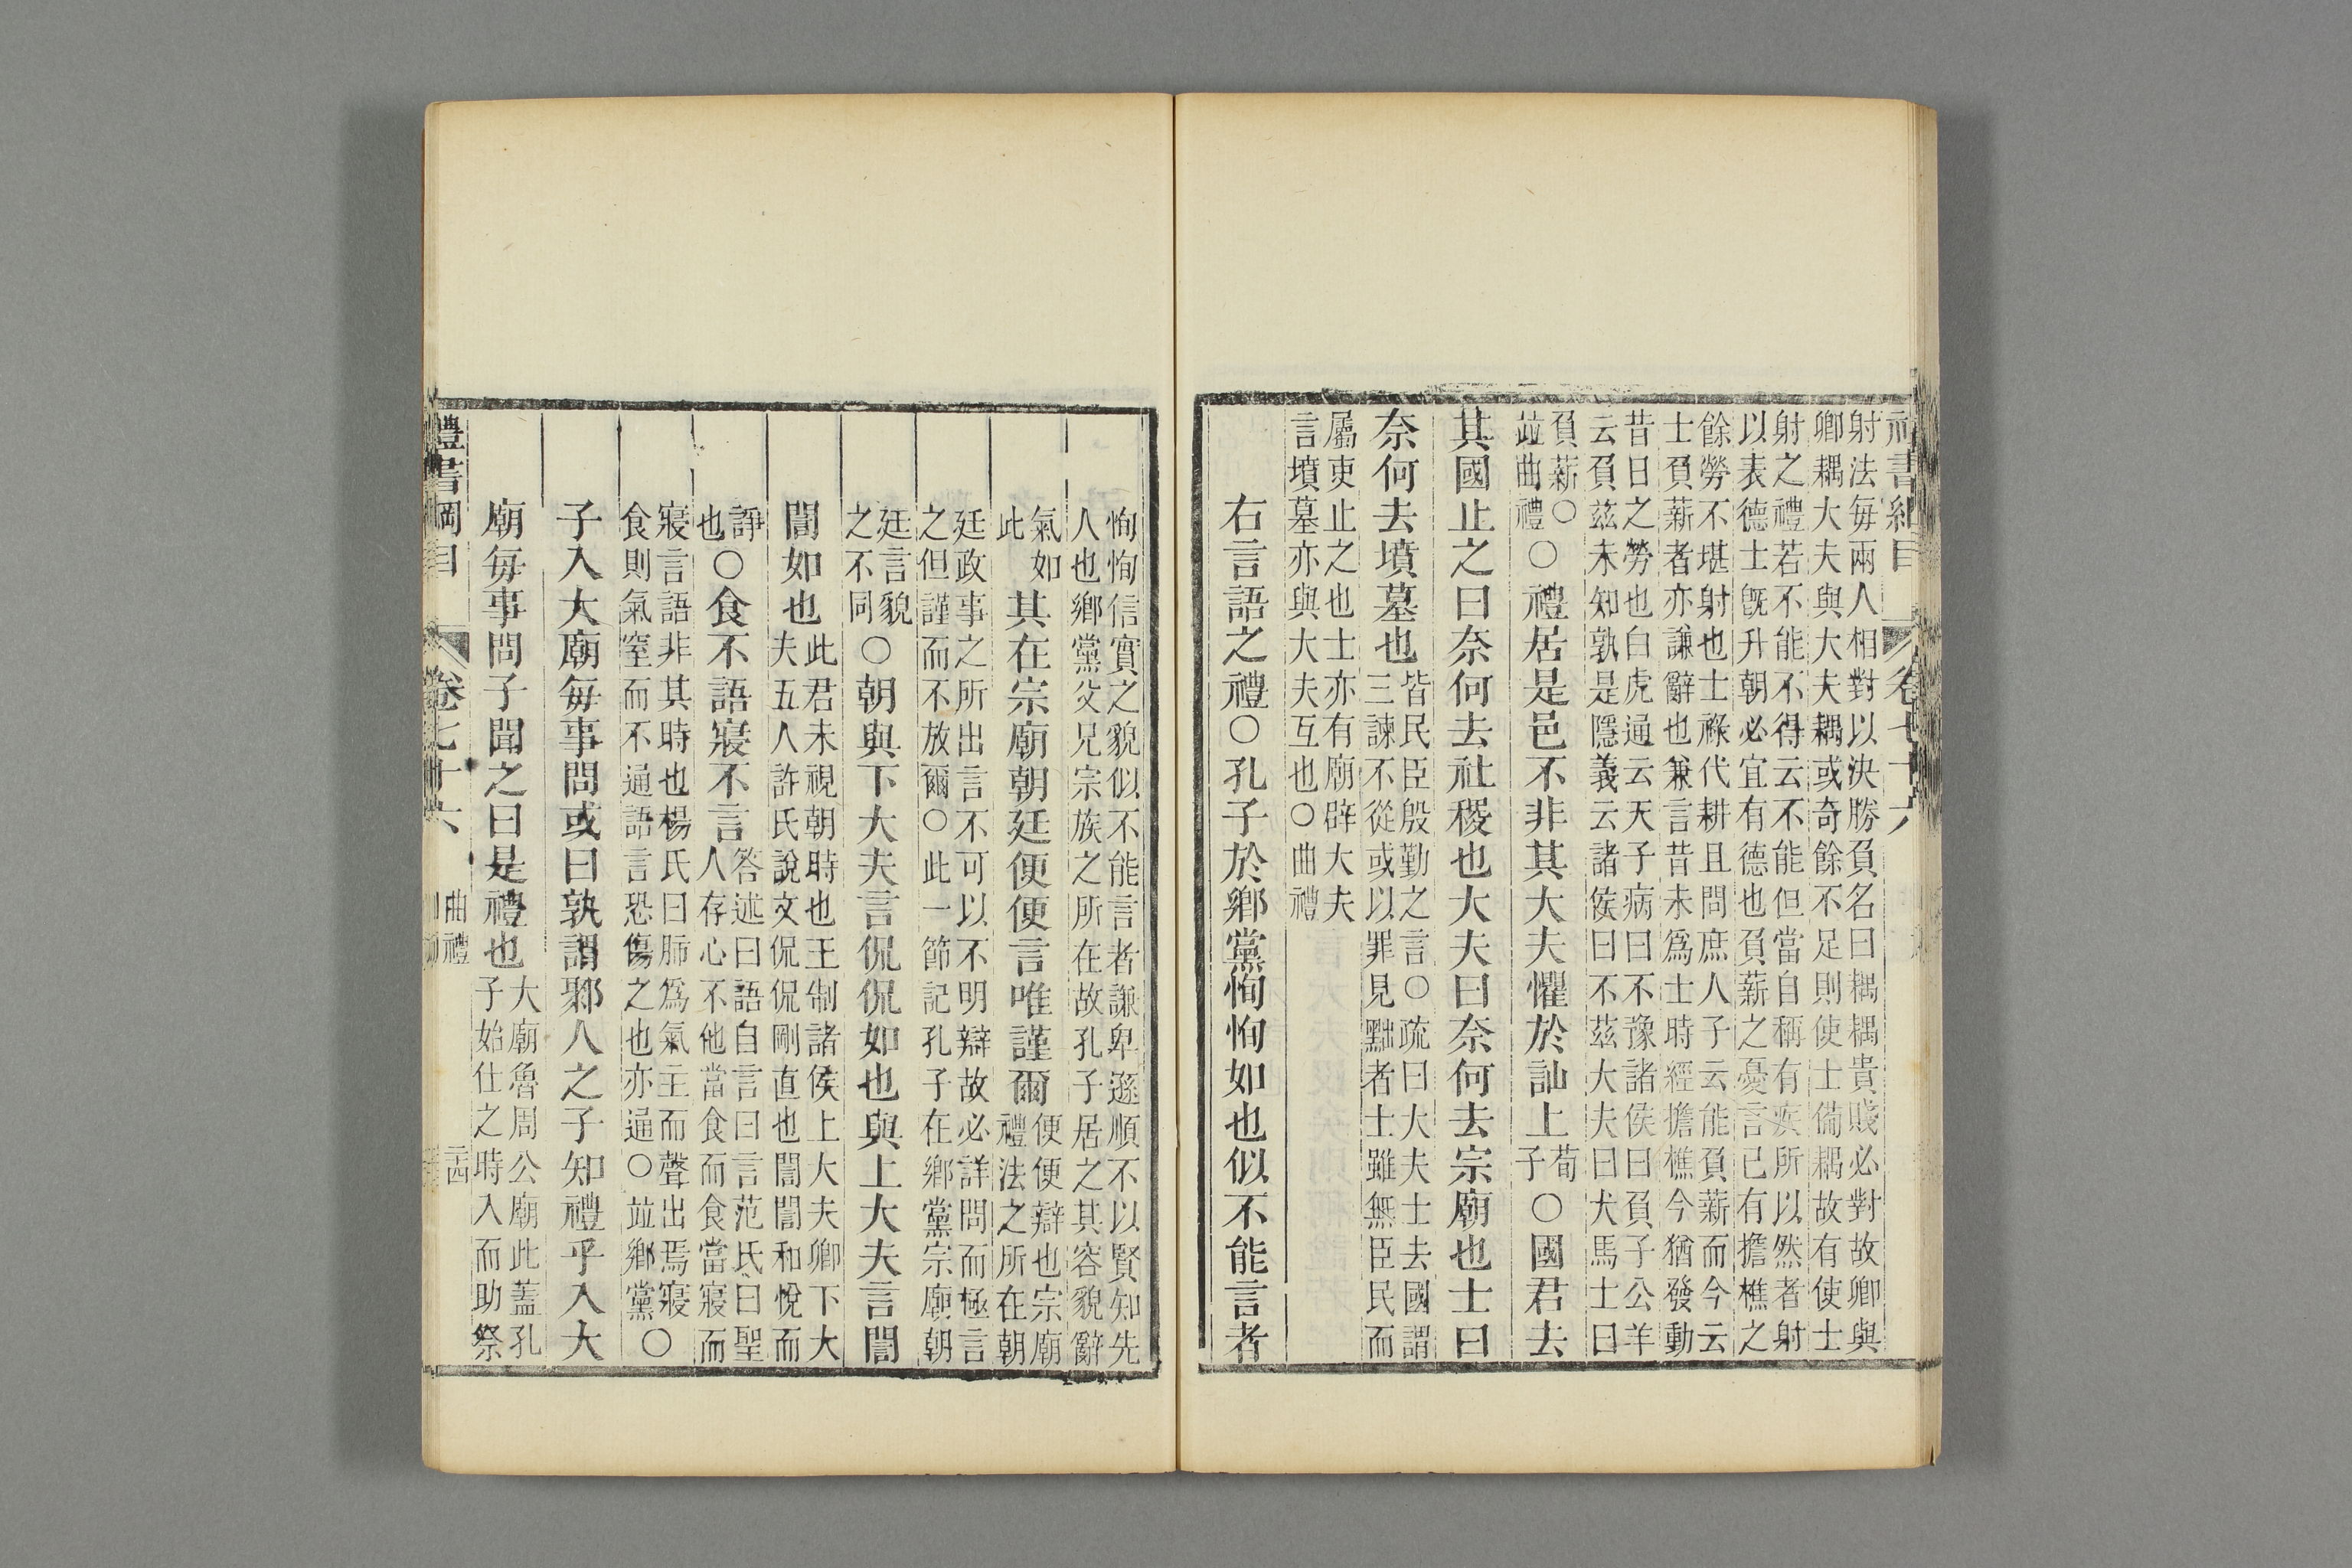 射法每兩人相對以決勝負名曰耦耦貴賤必對故卿與
卿耦大夫與大夫耦或奇餘不足則使士備耦故有使士
射之禮若不能不得云不能但當自稱有疾所以然者射
以表德士旣升朝必宜有德也負薪之憂言已有擔樵之
餘勞不堪射也士祿代耕且問庶人子云能負薪而今云
士負薪者亦謙辭也兼言昔未爲士時經擔樵今猶發動
昔日之勞也白虎通云天子病曰不豫諸侯曰負子公羊
云負茲未知孰是隱義云諸侯曰不茲大夫曰犬馬士曰
負薪○
竝曲禮○禮居是邑不非其大夫懼於訕上荀子○國君去
其國止之曰奈何去社稷也大夫曰奈何去宗廟也士曰
奈何去墳墓也皆民臣殷勤之言○疏曰大夫士去國謂
三諫不從或以罪見黜者士雖無臣民而
屬吏止之也士亦有廟辟大夫
言墳墓亦與大夫互也○曲禮
右言語之禮○孔子於鄉黨恂恂如也似不能言者
恂恂信實之貌似不能言者謙卑遜順不以賢知先
人也鄉黨父兄宗族之所在故孔子居之其容貌辭
氣如
此其在宗廟朝廷便便言唯謹爾便便辯也宗廟
禮法之所在朝
廷政事之所出言不可以不明辯故必詳問而極言
之但謹而不放爾○此一節記孔子在鄉黨宗廟朝
廷言貌
之不同○朝與下大夫言侃侃如也與上大夫言誾
誾如也此君未視朝時也王制諸侯上大夫卿下大
夫五人許氏說文侃侃剛直也誾誾和悅而
諍
也○食不語寢不言答述曰語自言曰言范氏曰聖
人存心不他當食而食當寢而
寢言語非其時也楊氏曰肺爲氣主而聲出焉寢
食則氣窒而不通語言恐傷之也亦通○竝鄉黨○
子入大廟每事問或曰孰謂鄹人之子知禮乎入大
廟每事問子聞之曰是禮也大廟魯周公廟此蓋孔
子始仕之時入而助祭
禮書綱目 卷七十六 曲禮